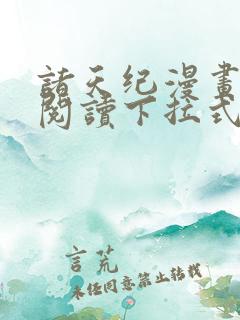 諸天纪漫畫
閱讀下拉式
言荒
未经同意禁止转载